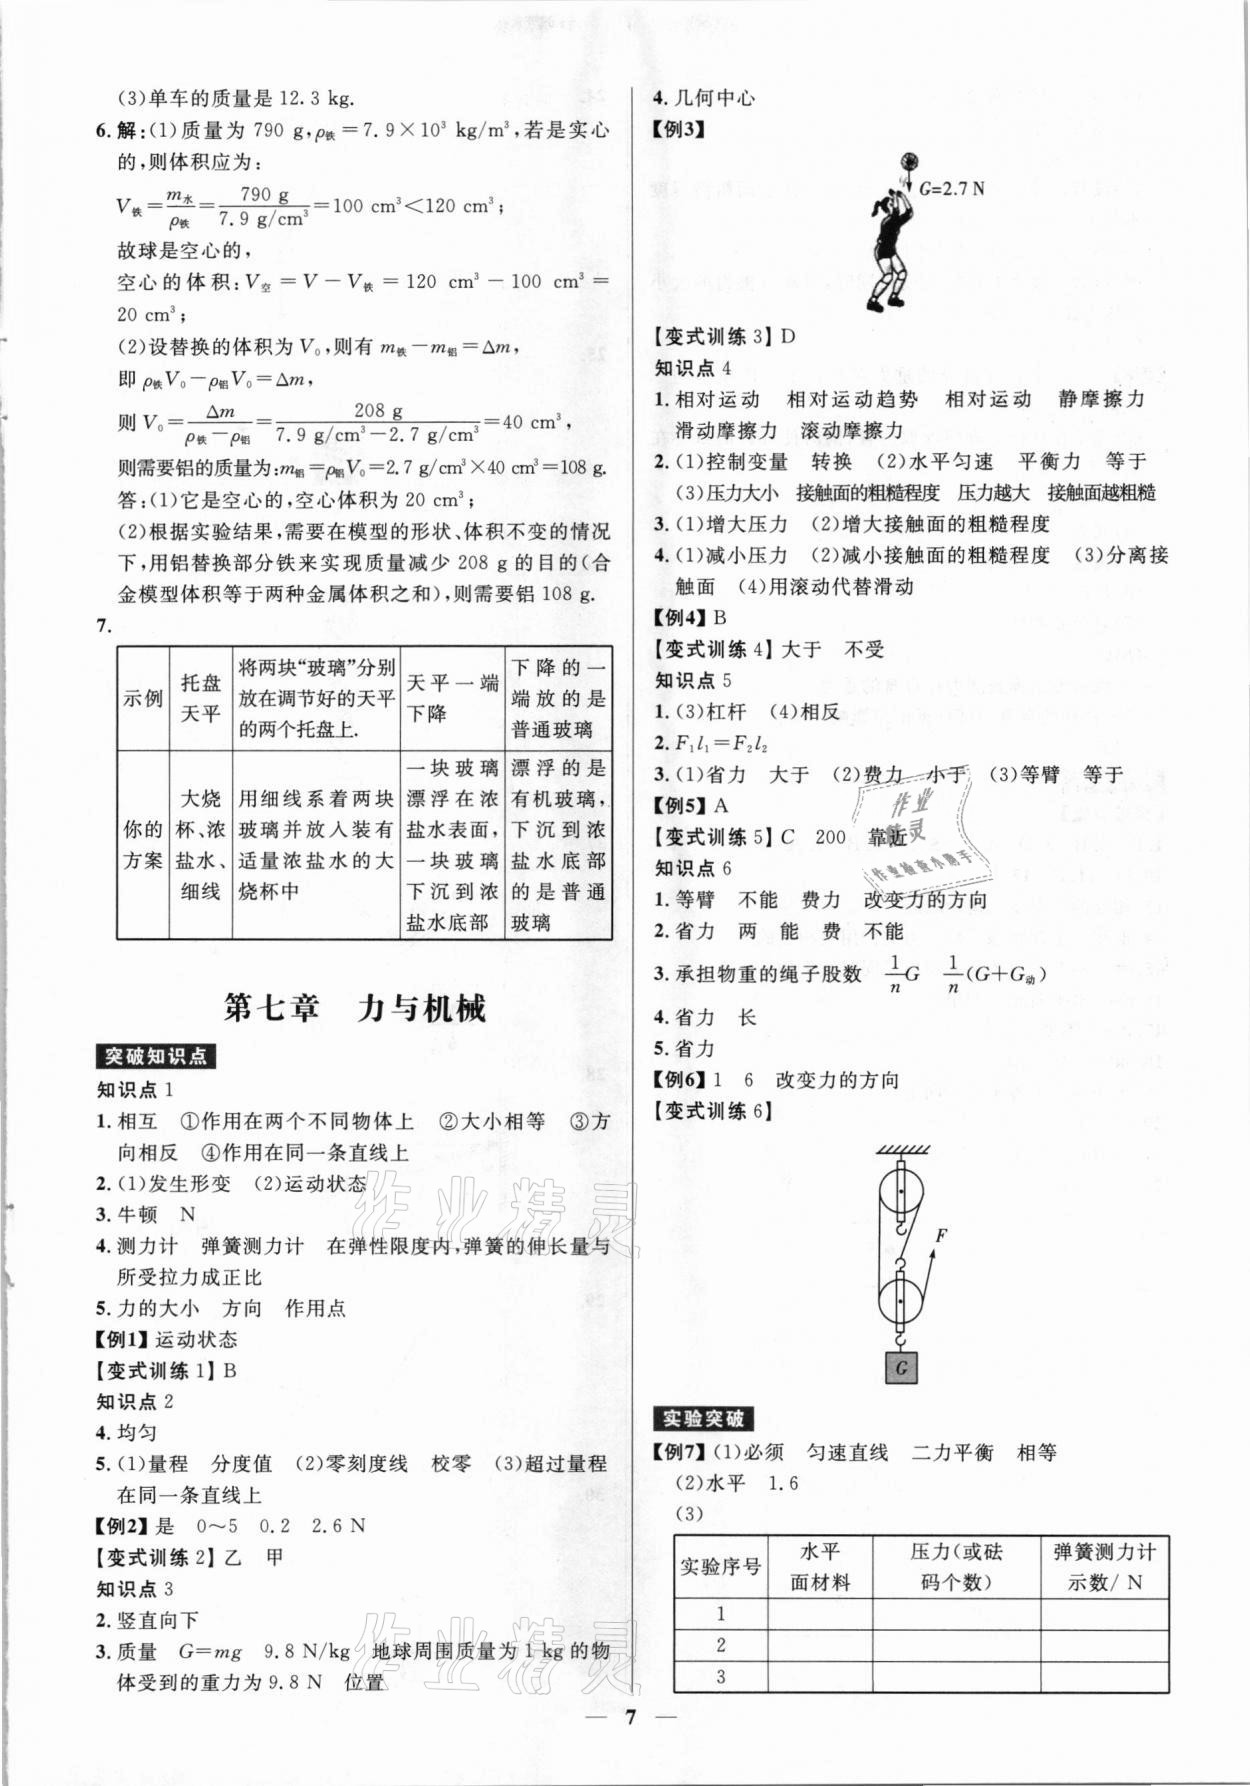 (3)单车的质量是 12.3 kg.
6.解:(1)质量为 790 g,ρ铁=7.9×10³ kg/m³,若是实心
的,则体积应为:
V铁=m水/ρ铁=790 g/7.9 g/cm³=100 cm³<120 cm³;
故球是空心的,
空心的体积:V空=V-V铁=120 cm³-100 cm³=
20 cm³;
(2)设替换的体积为 V₀,则有 m铁-m铝=Δm,
即 ρ铁V₀-ρ铝V₀=Δm,
则 V₀=Δm/(ρ铁-ρ铝)=208 g/(7.9 g/cm³-2.7 g/cm³)=40 cm³,
则需要铝的质量为:m铝=ρ铝V₀=2.7 g/cm³×40 cm³=108 g.
答:(1)它是空心的,空心体积为 20 cm³;
(2)根据实验结果,需要在模型的形状、体积不变的情况
下,用铝替换部分铁来实现质量减少 208 g 的目的(合
金模型体积等于两种金属体积之和),则需要铝 108 g.
7.
示例
托盘
天平
将两块“玻璃”分别
放在调节好的天平
的两个托盘上.
天平一端
下降
下降的一
端放的是
普通玻璃
你的
方案
大烧
杯、浓
盐水、
细线
用细线系着两块
玻璃并放入装有
适量浓盐水的大
烧杯中
一块玻璃
漂浮在浓
盐水表面,
一块玻璃
下沉到浓
盐水底部
漂浮的是
有机玻璃,
下沉到浓
盐水底部
的是普通
玻璃
第七章 力与机械
突破知识点
知识点 1
1.相互 ①作用在两个不同物体上 ②大小相等 ③方
向相反 ④作用在同一条直线上
2.(1)发生形变 (2)运动状态
3.牛顿 N
4.测力计 弹簧测力计 在弹性限度内,弹簧的伸长量与
所受拉力成正比
5.力的大小 方向 作用点
【例1】运动状态
【变式训练 1】B
知识点 2
4.均匀
5.(1)量程 分度值 (2)零刻度线 校零 (3)超过量程
在同一条直线上
【例2】是 0～5 0.2 2.6 N
【变式训练 2】乙 甲
知识点 3
2.竖直向下
3.质量 G=mg 9.8 N/kg 地球周围质量为 1 kg 的物
体受到的重力为 9.8 N 位置
4.几何中心
【例3】
G=2.7 N
【变式训练 3】D
知识点 4
1.相对运动 相对运动趋势 相对运动 静摩擦力
滑动摩擦力 滚动摩擦力
2.(1)控制变量 转换 (2)水平匀速 平衡力 等于
(3)压力大小 接触面的粗糙程度 压力越大 接触面越粗糙
3.(1)增大压力 (2)增大接触面的粗糙程度
4.(1)减小压力 (2)减小接触面的粗糙程度 (3)分离接
触面 (4)用滚动代替滑动
【例4】B
【变式训练 4】大于 不受
知识点 5
1.(3)杠杆 (4)相反
2.F₁l₁=F₂l₂
3.(1)省力 大于 (2)费力 小于 (3)等臂 等于
【例5】A
【变式训练 5】C 200 靠近
知识点 6
1.等臂 不能 费力 改变力的方向
2.省力 两 能 费 不能
3.承担物重的绳子股数 1/n G 1/n (G+G动)
4.省力 长
5.省力
【例6】1 6 改变力的方向
【变式训练 6】
F
G
实验突破
【例7】(1)必须 匀速直线 二力平衡 相等
(2)水平 1.6
(3)
实验序号
水平
面材料
压力(或砝
码个数)
弹簧测力计
示数/ N
1
2
3
作业精灵
作业精灵
作业
精灵
作业检查小帮手
— 7 —